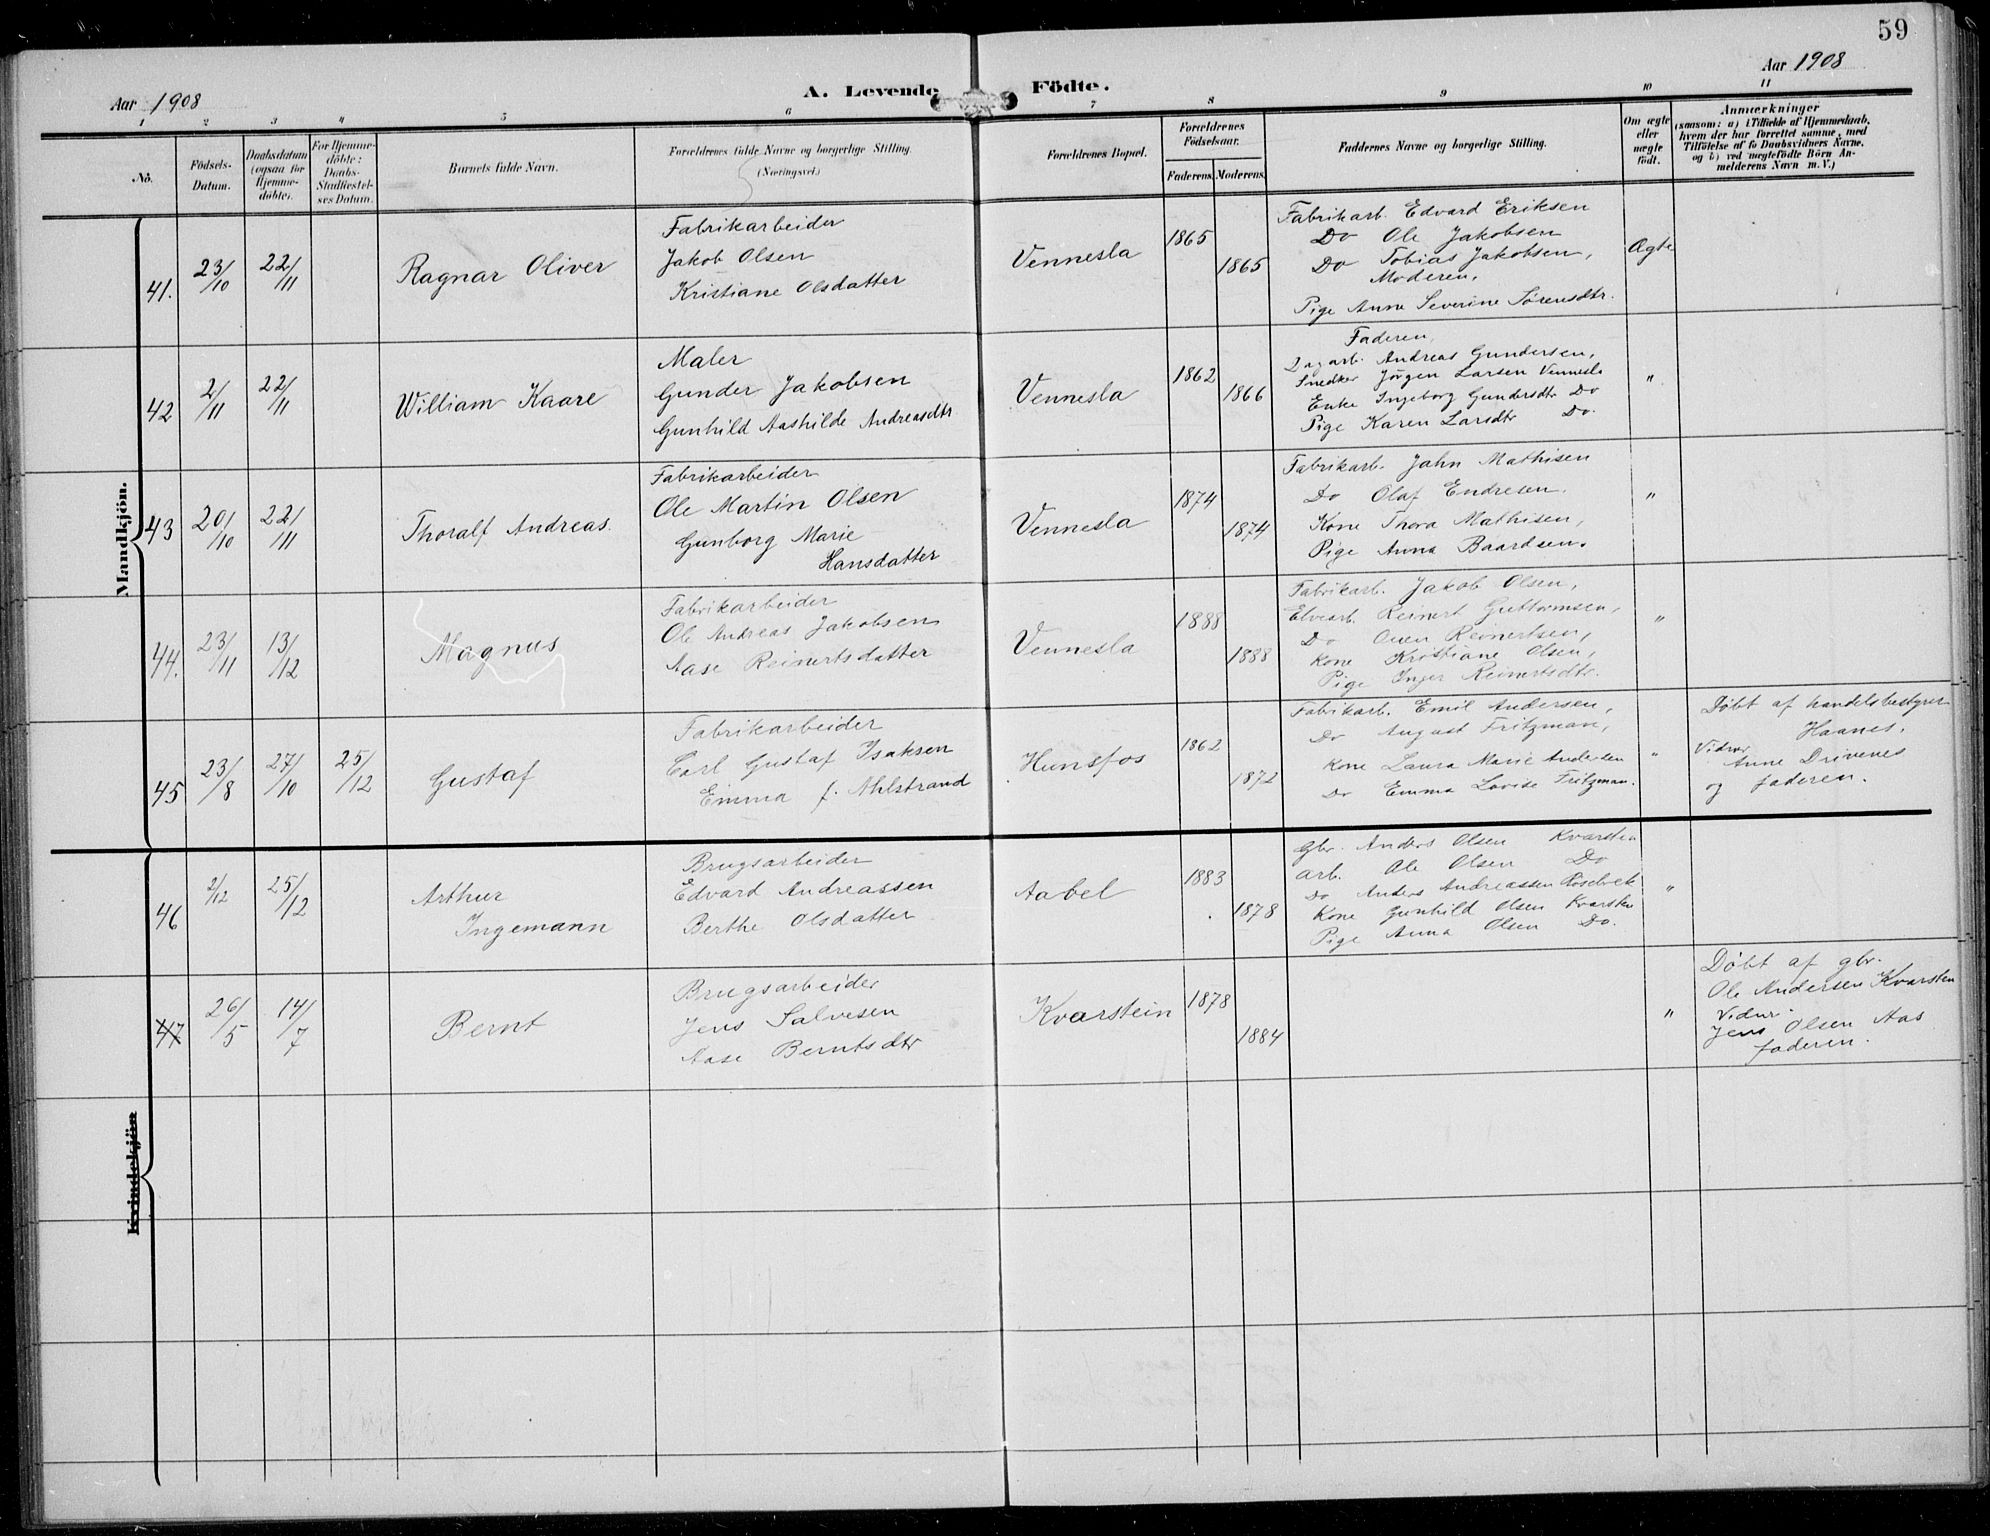 59
Aar 1908
A. Levende Födte.
Aar 1908
1 2 3 4 5 6 7 8 9 10 11
No.
Födsels-Datum.
Daabsdatum (ogsaa for Hjemme-döbte).
For Hjemme-döbte: Daabs-Stadfæstel-ses Datum.
Barnets fulde Navn.
Forældrenes fulde Navne og borgerlige Stilling.
(Næringsvei.)
Forældrenes Bopæl.
Forældrenes Födselsaar.
Faderens. Moderens.
Faddernes Navne og borgerlige Stilling.
Om ægte eller uægte födt.
Anmærkninger
(saasom: a) i Tilfælde af Hjemmedaab, hvem der har forrettet samme, med Tilföielse af to Daabsvidners Navne, og b) ved uægtefödte Börn An-melderens Navn m. V.)
Mandkjön.
41. 23/10 22/11 Ragnar Oliver
Fabrikarbeider
Jakob Olsen
Kristiane Olsdatter
Vennesla 1865 1865
Fabrikarb. Edvard Eriksen
Do Ole Jakobsen
Do Tobias Jakobsen,
Moderen,
Pige Anne Severine Sørensdtr.
Ægte
42 2/11 22/11 William Kaare
Maler
Gunder Jakobsen
Gunhild Aashilde Andreasdtr
Vennesla 1862 1866
Faderen,
Dagarb. Andreas Gundersen,
Snedker Jørgen Larsen Vennesla
Enke Ingeborg Gundersdtr Do
Pige Karen Larsdtr Do.
"
43 20/10 22/11 Thoralf Andreas.
Fabrikarbeider
Ole Martin Olsen
Gunborg Marie
Hansdatter
Vennesla 1874 1874
Fabrikarb. John Mathisen
Do Olaf Endresen.
Kone Thora Mathisen,
Pige Anna Baardsen.
"
44. 23/11 13/12 Magnus
Fabrikarbeider
Ole Andreas Jakobsen
Aase Reinertsdatter
Vennesla 1888 1888
Fabrikarb. Jakob Olsen,
Elvearb. Reinert Guttormsen,
Do Owen Reinertsen,
Kone Kristiane Olsen,
Pige Inger Reinertsdtr.
"
45 23/8 27/10 25/12 Gustaf
Fabrikarbeider
Carl Gustaf Isaksen
Emma f. Ahlstrand
Hunsfos 1862 1872
Fabrikarb. Emil Andersen,
Do August Fritzman,
Kone Laura Marie Andersen
Do Emma Lovise Fritzman.
"
Døbt af handelsbestyrer
Haanes,
Vidner
Anne Drivenes
og faderen.
Kvindekjön
46 2/12 25/12 Arthur
Ingemann
Brugsarbeider
Edvard Andreassen
Berthe Olsdatter
Aabel 1883 1878
Gbr. Anders Olsen Kvarsten
arb. Ole Olsen Do
Do Anders Andreassen
Kone Gunhild Olsen Kvarsten
Pige Anna Olsen Do.
"
47 26/5 14/7 Bernt
Brugsarbeider
Jens Salvesen
Aase Berntsdtr
Kvarstein 1878 1884
"
Døbt af gbr.
Ole Andersen Kvarsten
Vidner
Jens Olsen Aas
faderen.